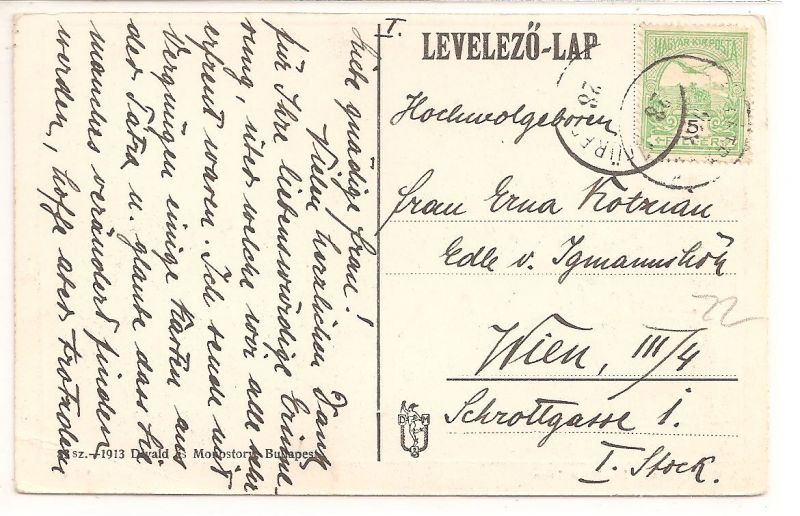 I.
LEVELEZŐ-LAP
MAGYAR KIR. POSTA
5
28
Hochwolgeboren
Frau Erna Kotzian
Edle v. Igmannshöh
Wien, III/4
Schrottgasse 1.
I. Stock.
22
Liebe gnädige Frau!
Vielen herzlichen Dank
für Ihre liebenswürdige Erinne-
rung, über welche wir alle sehr
erfreut waren. Ich sende mit
Vergnügen einige Karten aus
der Tátra u. glaube dass Sie
manches verändert finden
werden, hoffe aber trotzdem
sz. - 1913 Divald és Monostory Budapest
D M